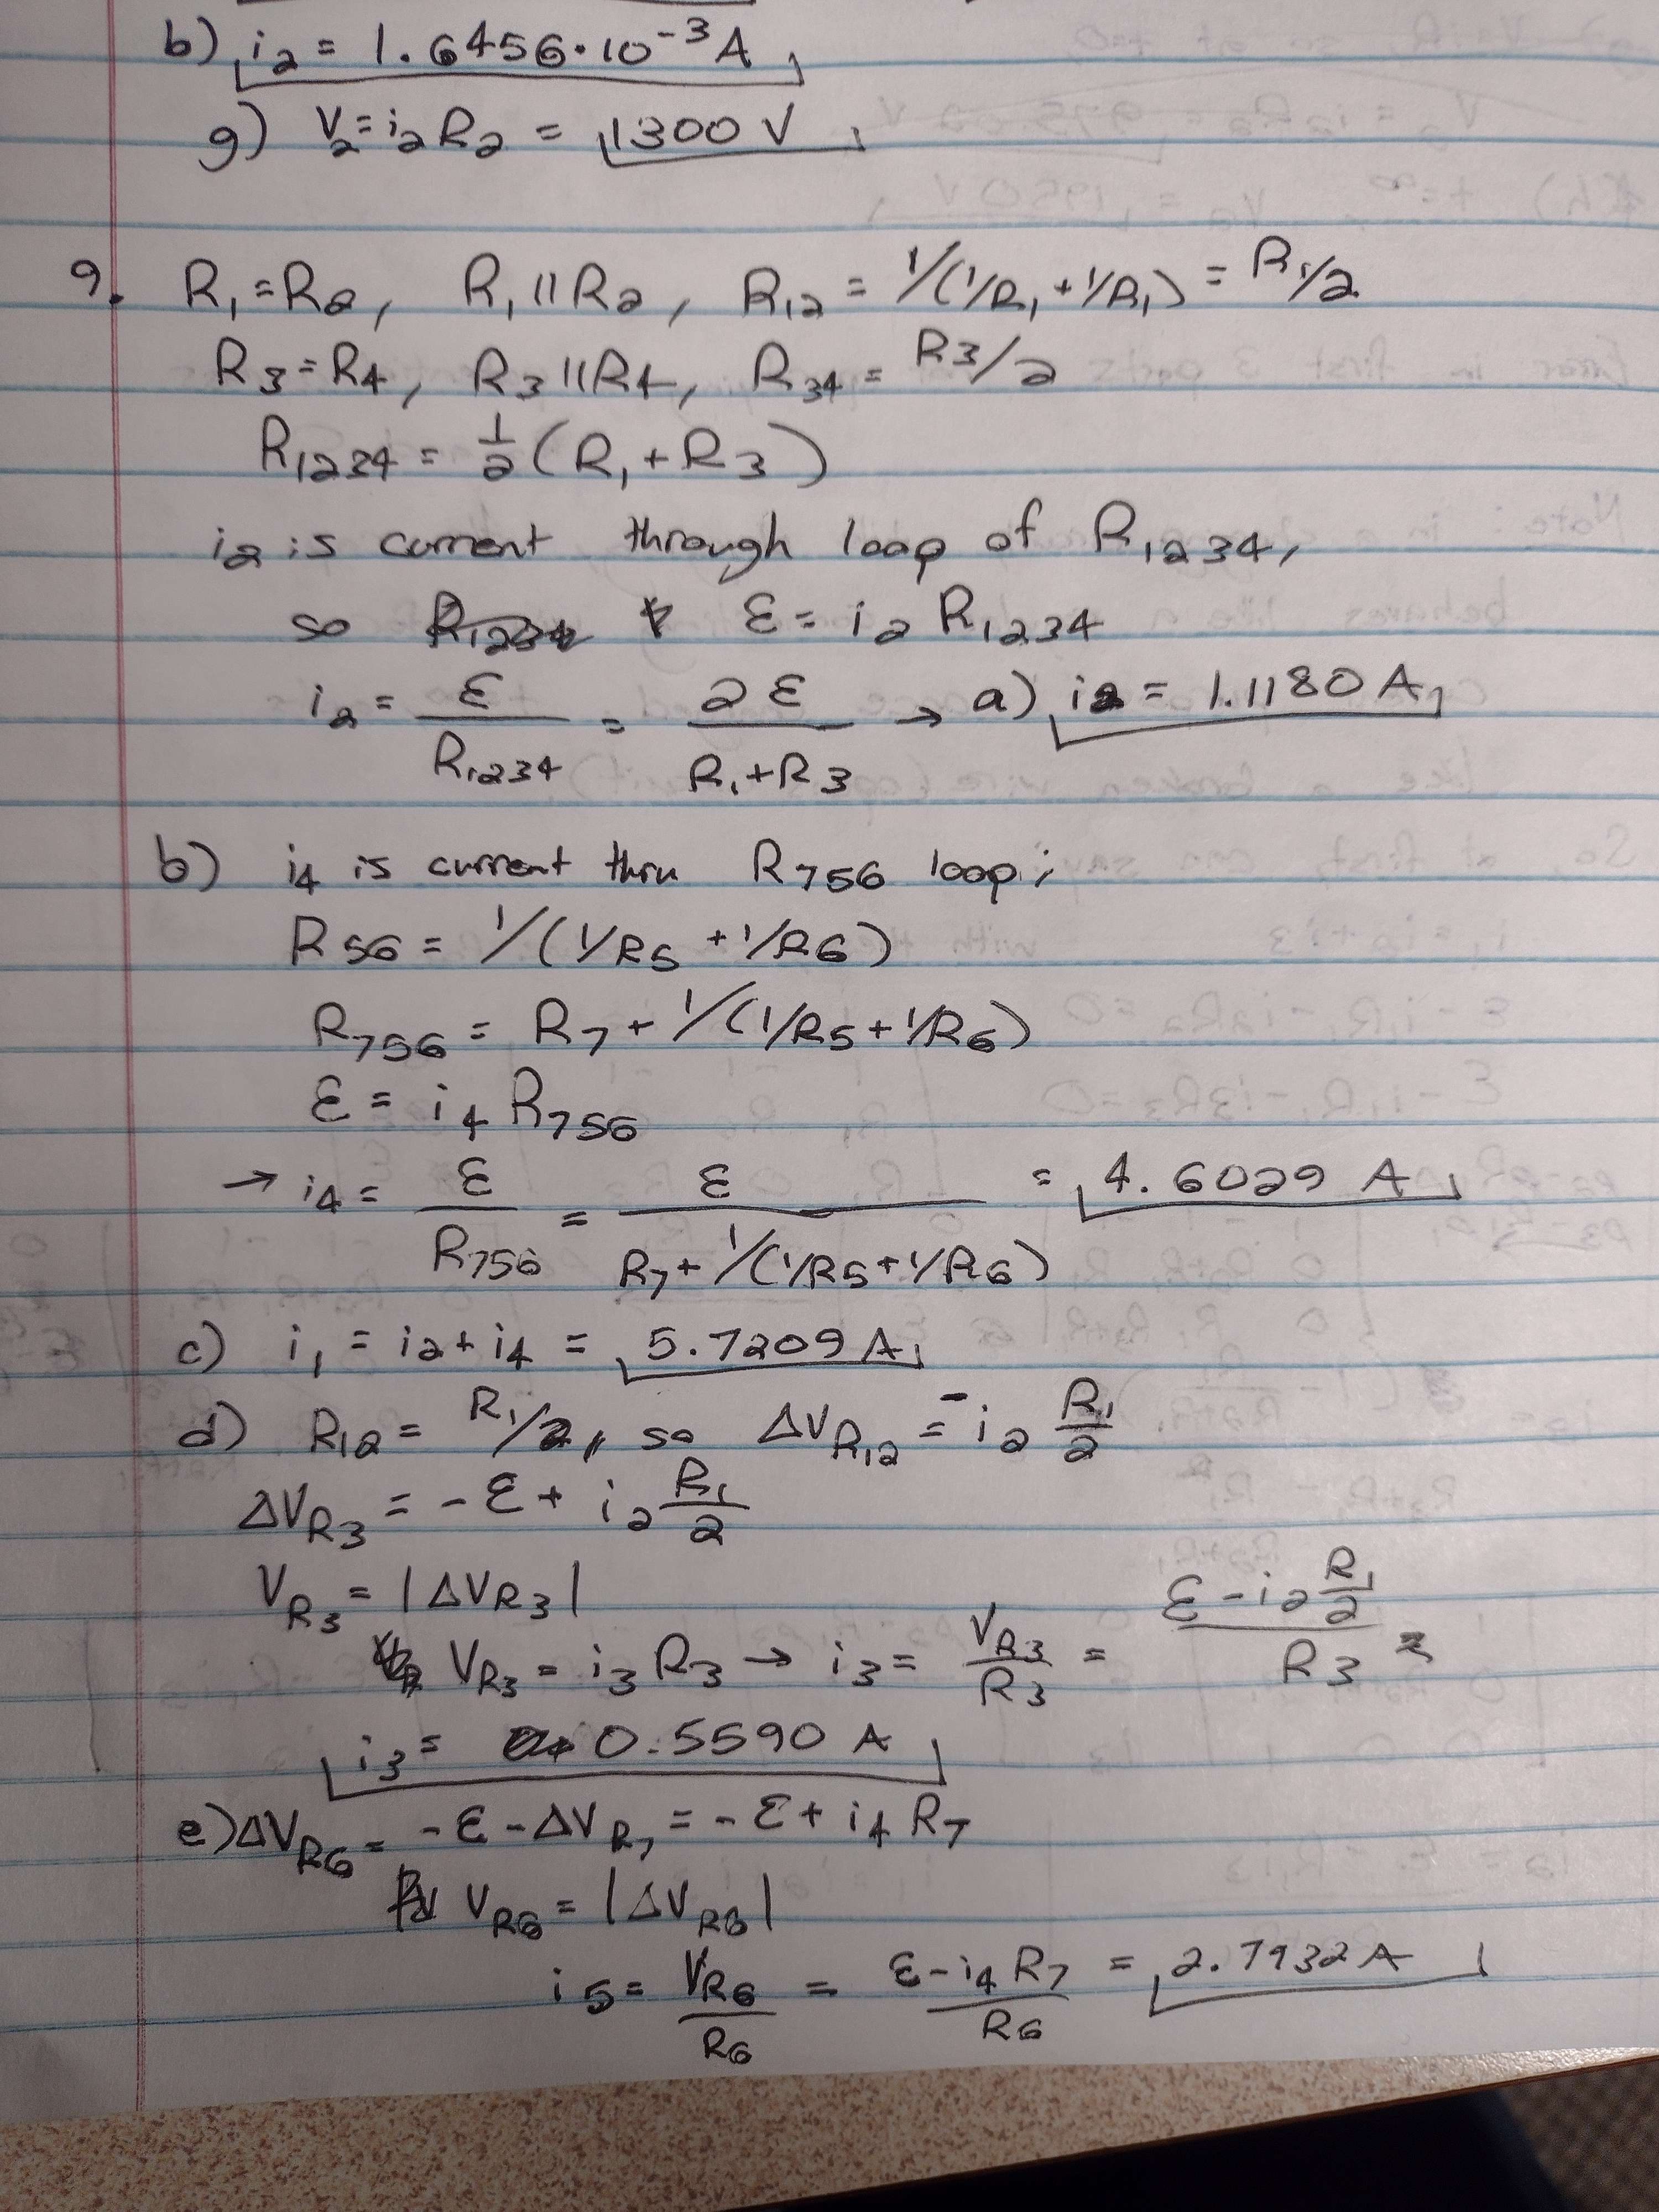 b) i2 = 1.6456·10⁻³ A
g) V2 = i2 R2 = 1300 V
9. R1 = R2, R1 || R2, R12 = 1/(1/R1 + 1/R1) = R1/2
R3 = R4, R3 || R4, R34 = R3/2
R1234 = 1/2 (R1 + R3)
i2 is current through loop of R1234,
so ε = i2 R1234
i2 = ε/R1234 = 2ε/(R1+R3) → a) i2 = 1.1180 A
b) i4 is current thru R756 loop;
R56 = 1/(1/R5 + 1/R6)
R756 = R7 + 1/(1/R5 + 1/R6)
ε = i4 R756
→ i4 = ε/R756 = ε/(R7 + 1/(1/R5 + 1/R6)) = 4.6029 A
c) i1 = i2 + i4 = 5.7209 A
d) R12 = R1/2, so ΔVR12 = -i2 R1/2
ΔVR3 = -ε + i2 R1/2
VR3 = |ΔVR3|
VR3 = i3 R3 → i3 = VR3/R3 = (ε - i2 R1/2)/R3
i3 = 0.5590 A
e) ΔVR6 = -ε - ΔVR7 = -ε + i4 R7
VR6 = |ΔVR6|
i5 = VR6/R6 = (ε - i4 R7)/R6 = 2.7932 A